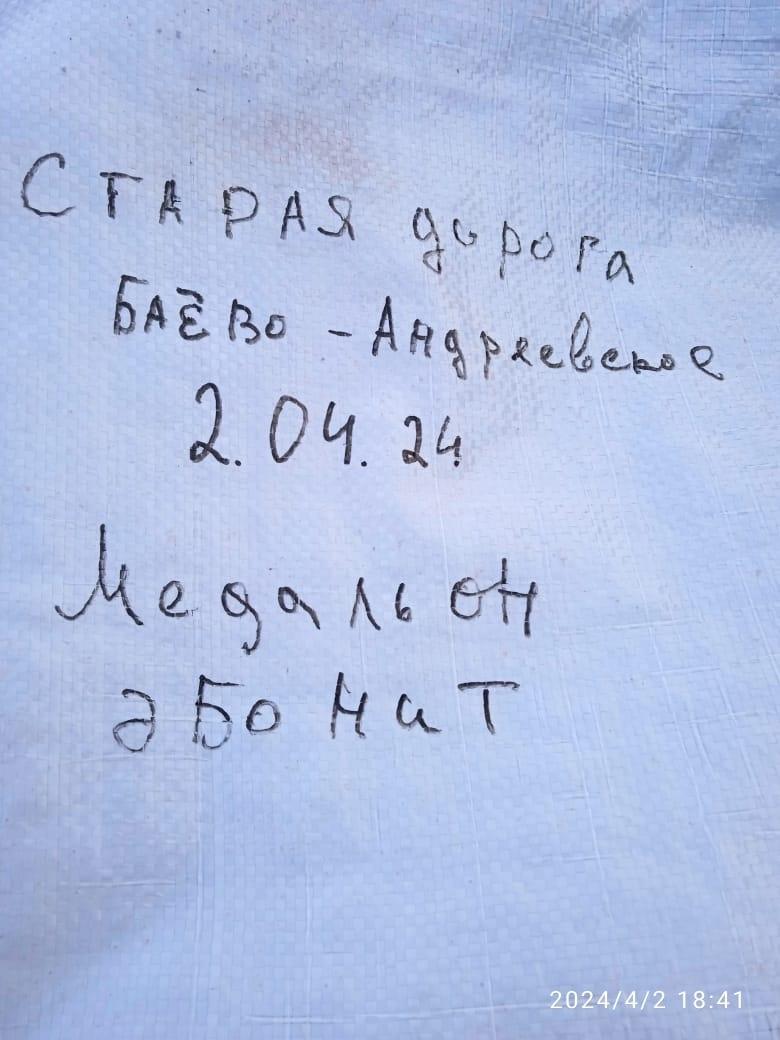 СТАРАЯ дорога
БАЁВО - Андреевское
2.04.24
Медальон
эбонит
2024/4/2 18:41